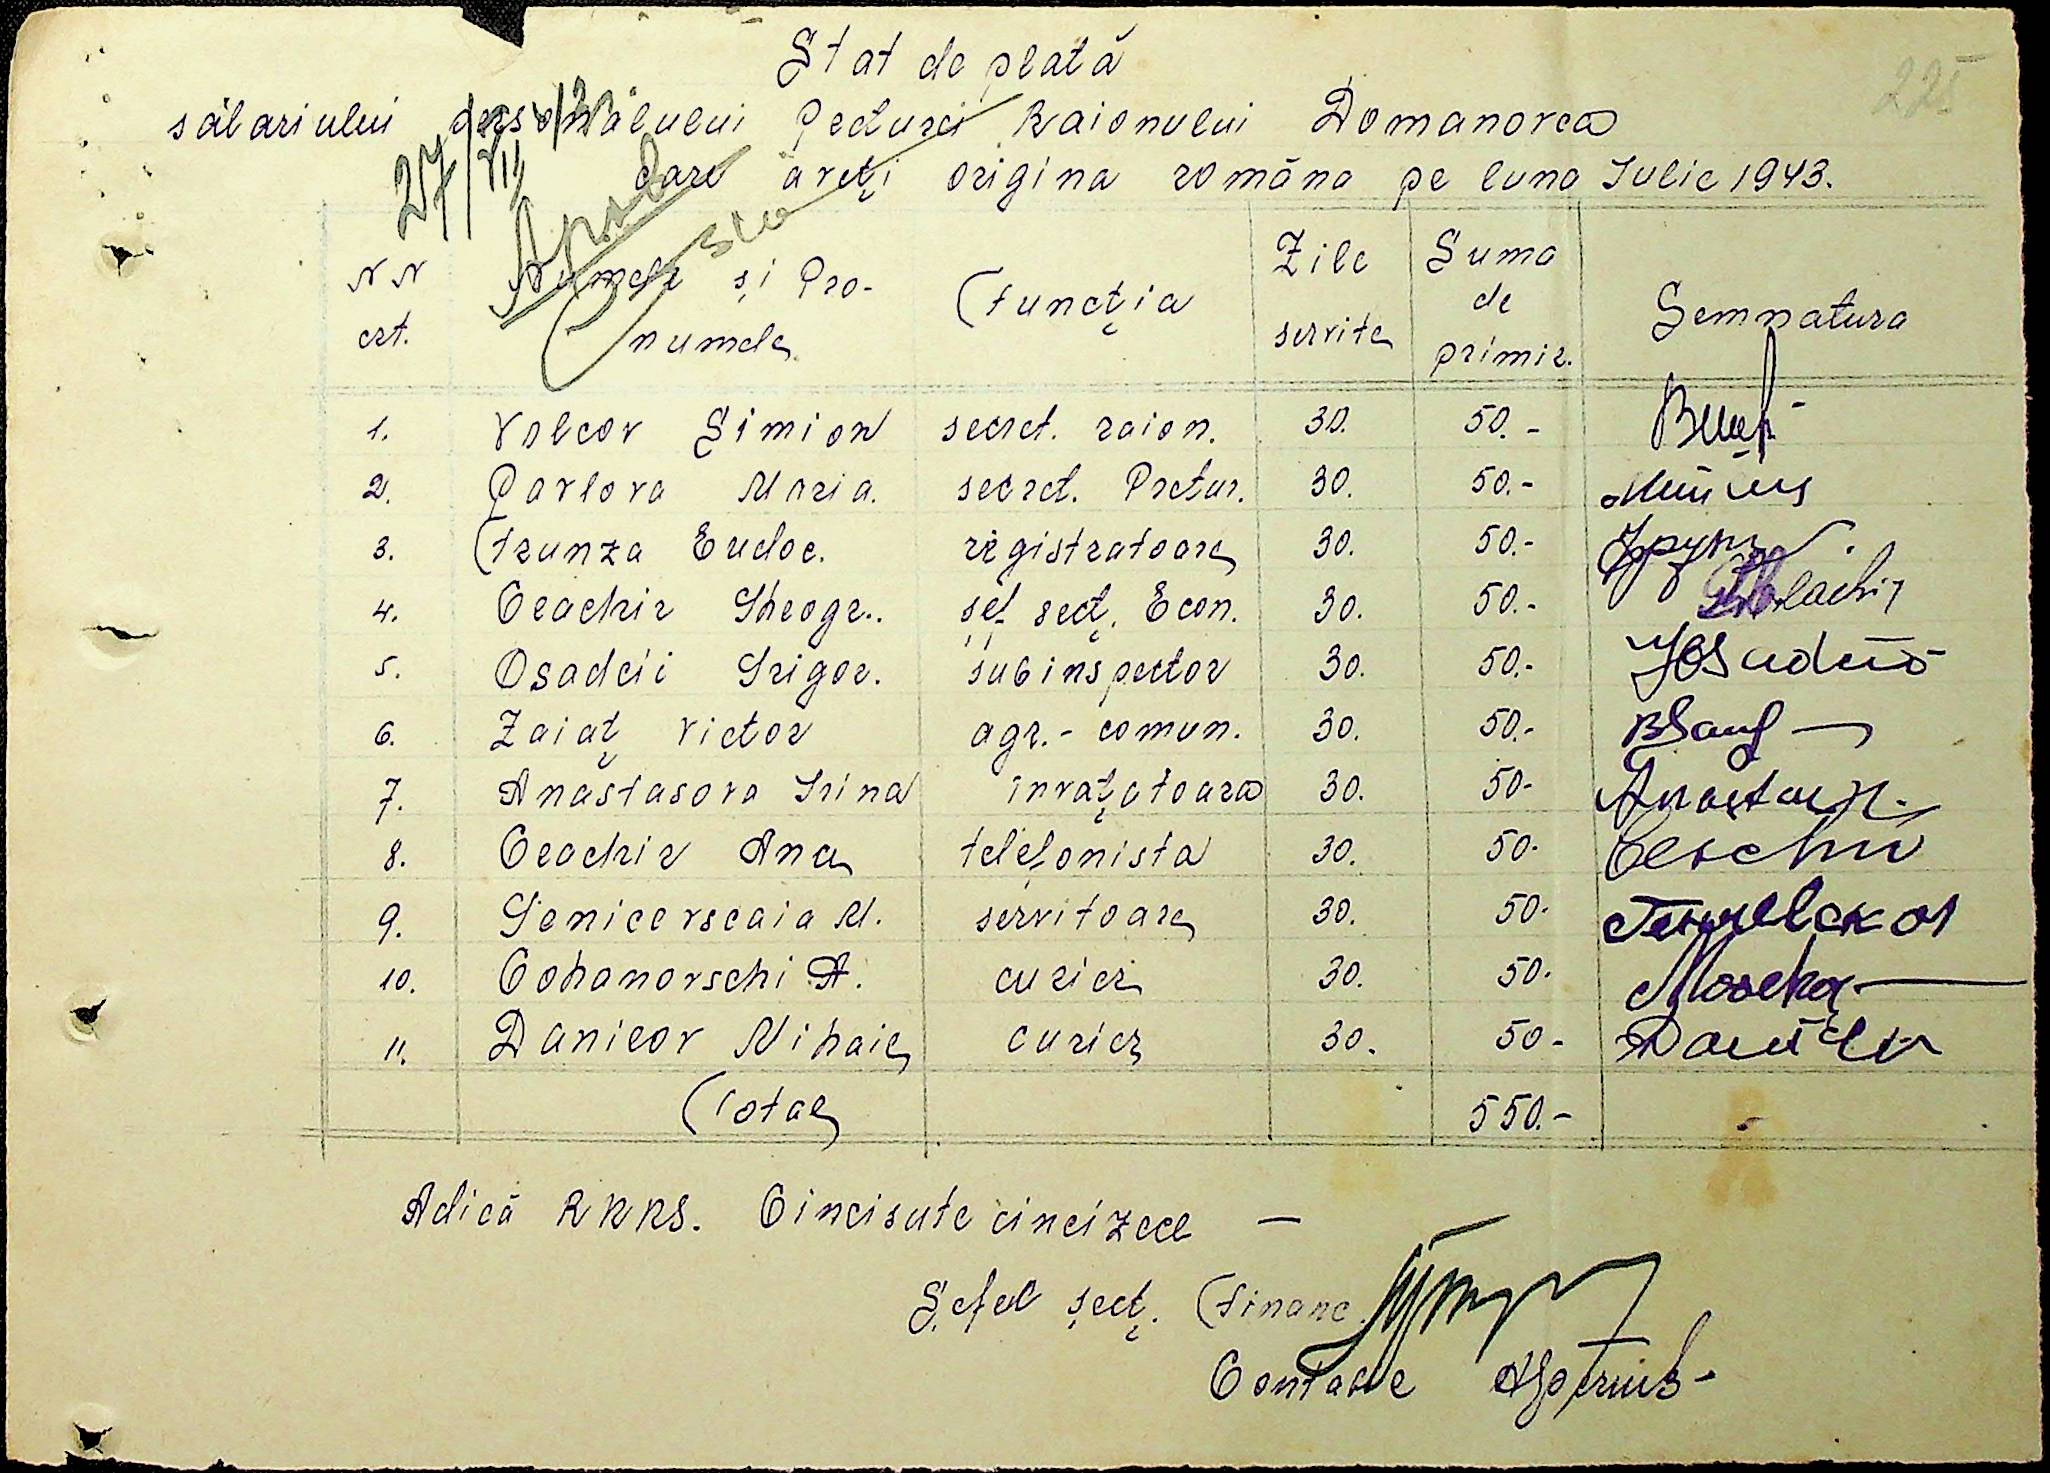 225
Stat de plată
salariului personalului Preturei Raionului Domanovca
care aveţi origina română pe luna Iulie 1943.
27/VII
Aprob
NN crt. Numele şi Pro-numele Funcţia Zile servite Suma de primir. Semnatura
1. Volcov Simion secret. raion. 30. 50.-
2. Pavlova Maria. secret. Pretur. 30. 50.-
3. Frunza Eudoc. registratoare 30. 50.-
4. Ceachir Gheogr. şef secţ. Econ. 30. 50.-
5. Osadcii Grigor. subinspector 30. 50.-
6. Zaiaţ Victor agr.-comun. 30. 50.-
7. Anastasova Irina invaţatoara 30. 50-
8. Ceachir Ana telefonista 30. 50.
9. Genicevscaia M. servitoare 30. 50.
10. Cohanovschi A. curier 30. 50.
11. Danilov Mihail curier 30. 50-
Total 550.-
Adică RKKS. Cincisute cincizece —
Şeful secţ. Financ.
Contabil